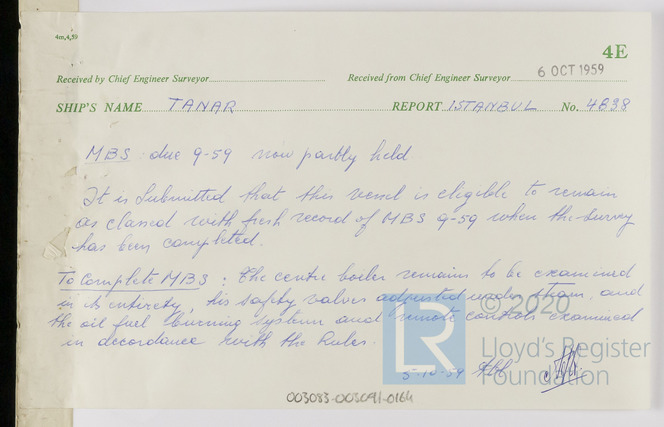 4m,4,59
4E
Received by Chief Engineer Surveyor
Received from Chief Engineer Surveyor 6 OCT 1959
SHIP'S NAME TANAR REPORT ISTANBUL No. 4838
MBS due 9-59 now partly held
It is submitted that this vessel is eligible to remain
as classed with fresh record of MBS 9-59 when the survey
has been completed.
To Complete MBS : The centre boiler remains to be examined
in its entirety, its safety valves adjusted under steam, and
the oil fuel burning system and remote controls examined
in accordance with the Rules.
5-10-59
LR
© 2020
Lloyd's Register
Foundation
003083-003091-0164